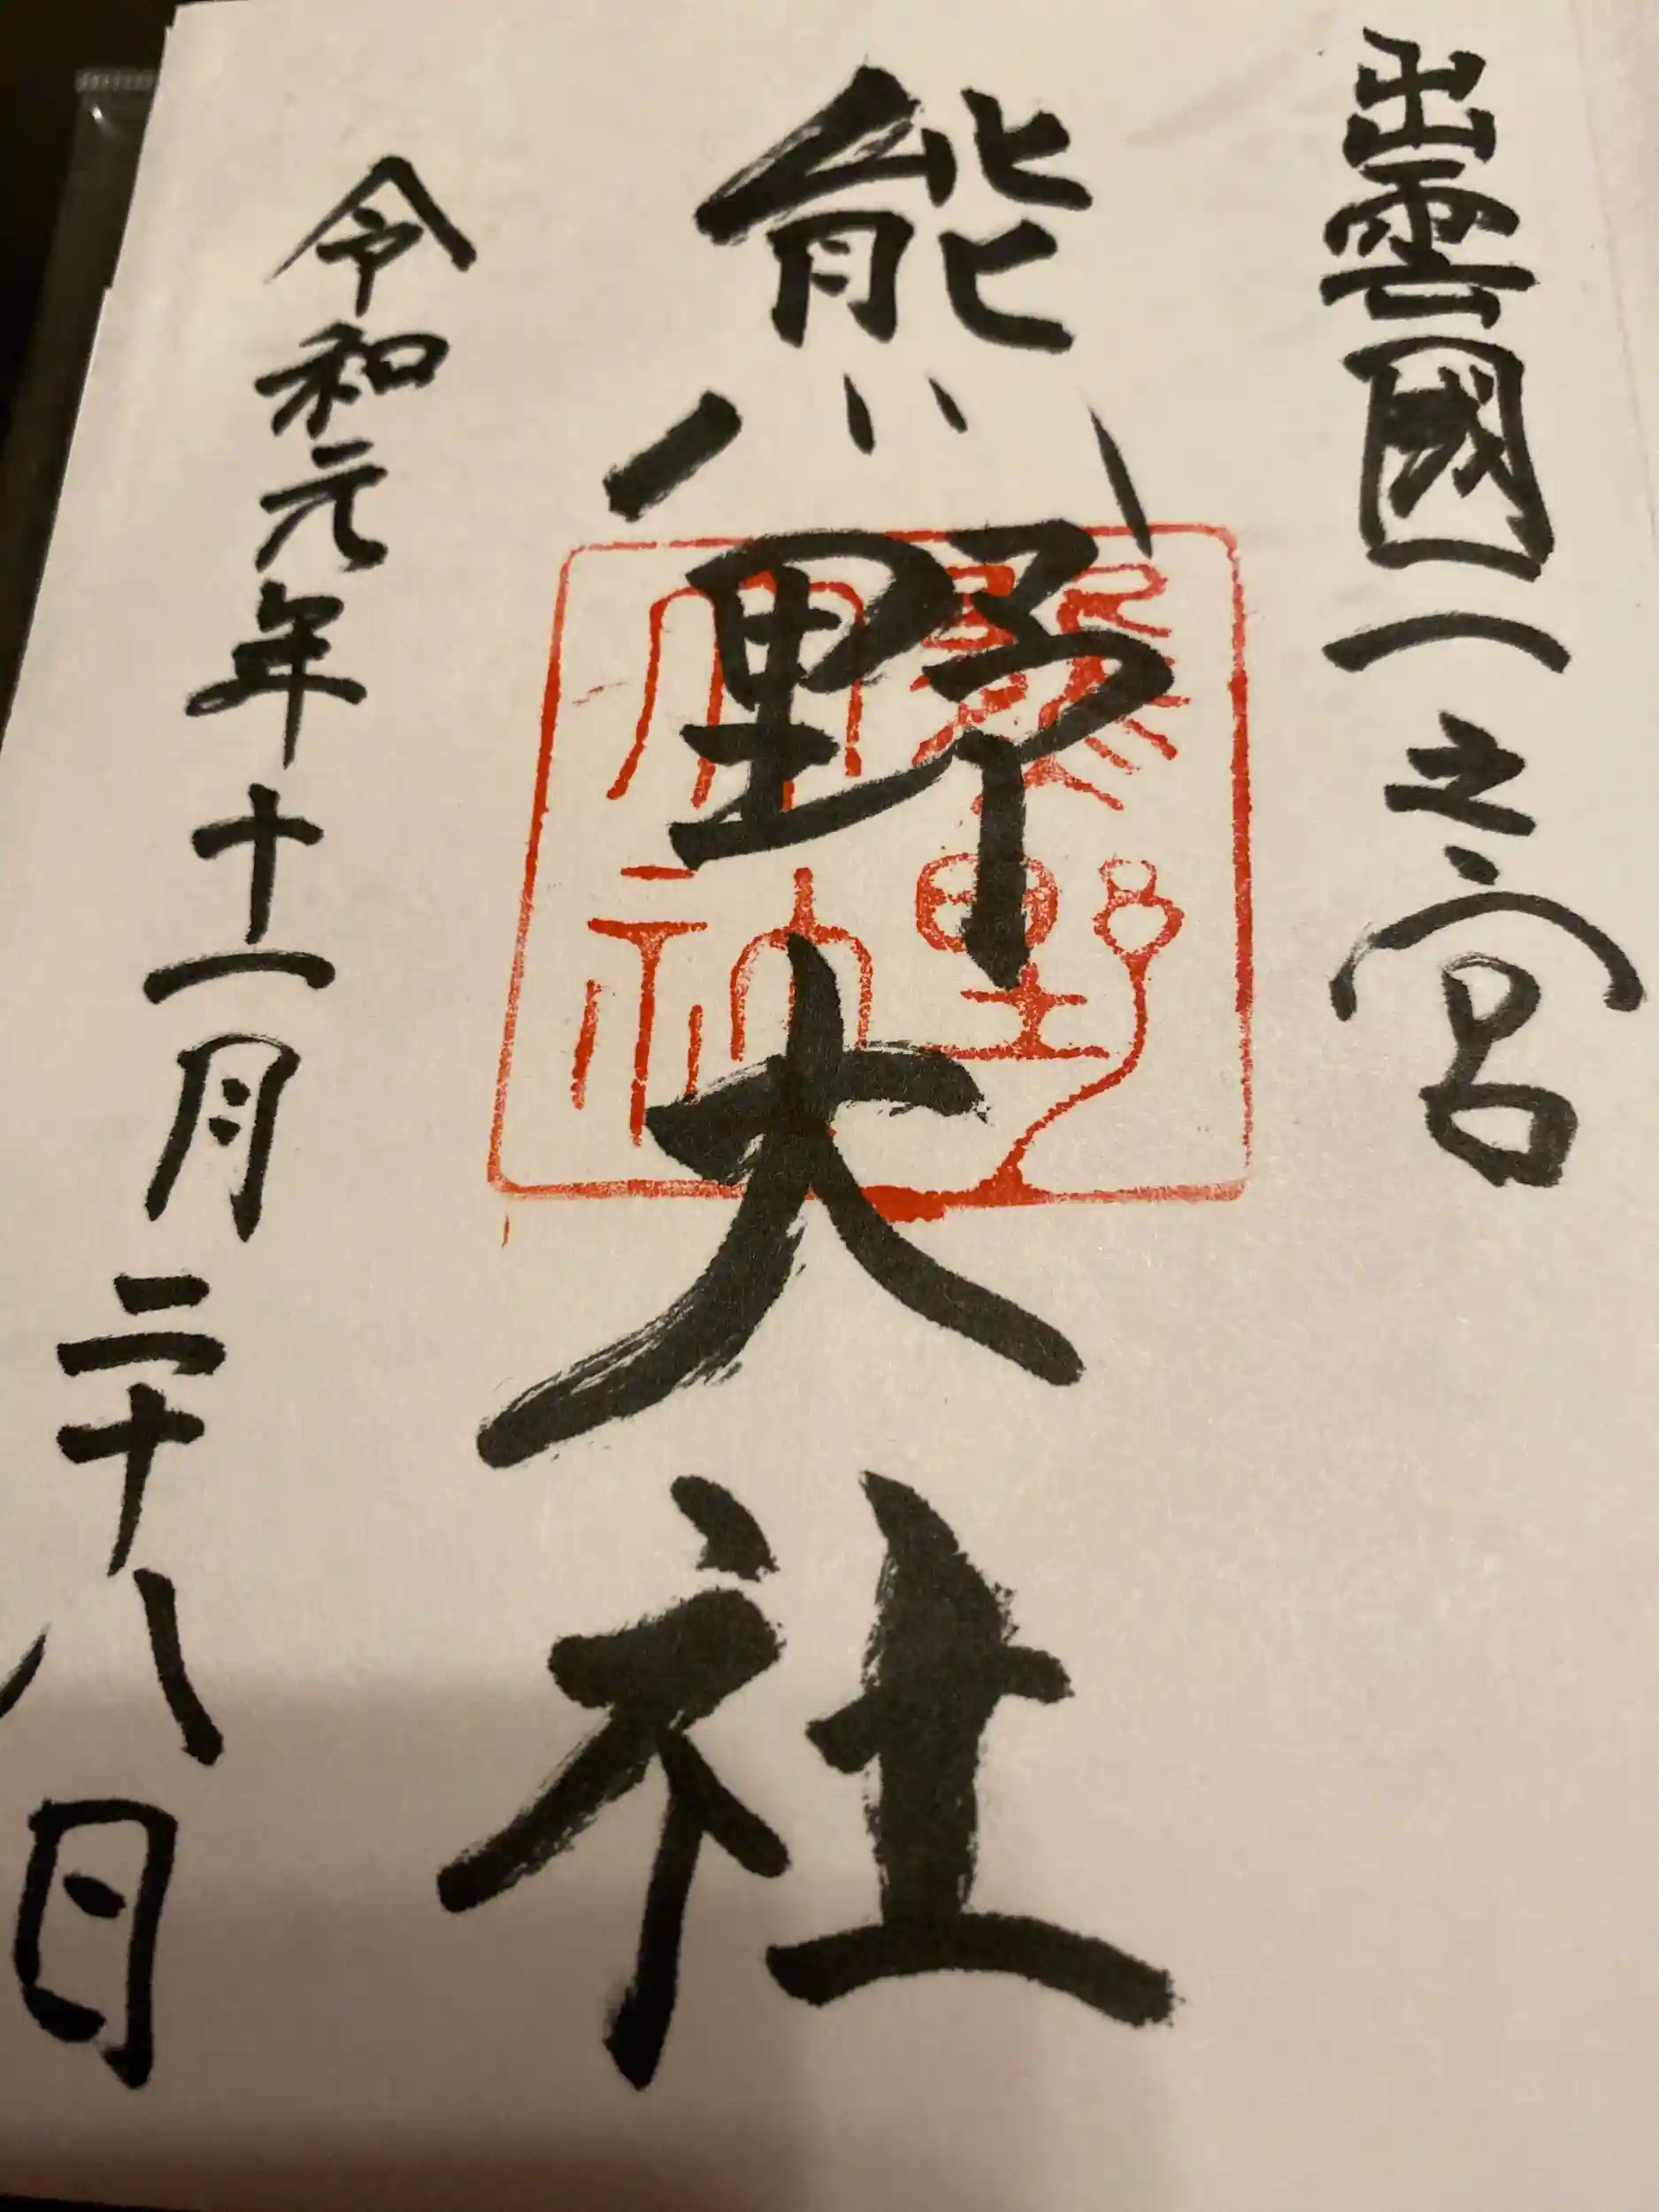 出雲國一之宮
熊野大社
熊野大社
令和元年十一月二十八日